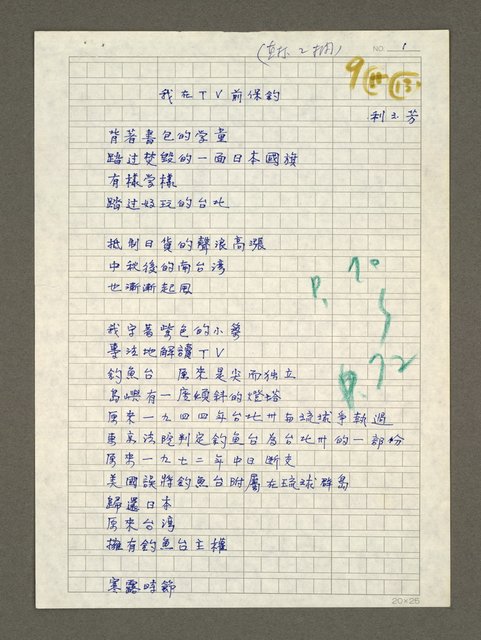 (直排2欄)
NO. 1
9
我在TV前保釣
利玉芳
背著書包的学童
踏过焚毀的一面日本國旗
有樣学樣
踏过好玩的台北
抵制日貨的聲浪高漲
中秋後的南台湾
也漸漸起風
我穿著紫色的小蔓
專注地解讀TV
釣魚台 原來是尖而独立
島嶼有一座傾斜的燈塔
原來一九四四年台北州与琉球爭執過
東京法院判定釣魚台為台北州的一部份
原來一九七二年中日断交
美國誤將釣魚台附屬在琉球群島
歸還日本
原來台湾
擁有釣魚台主權
寒露時節
P. 70
P. 72
20×25